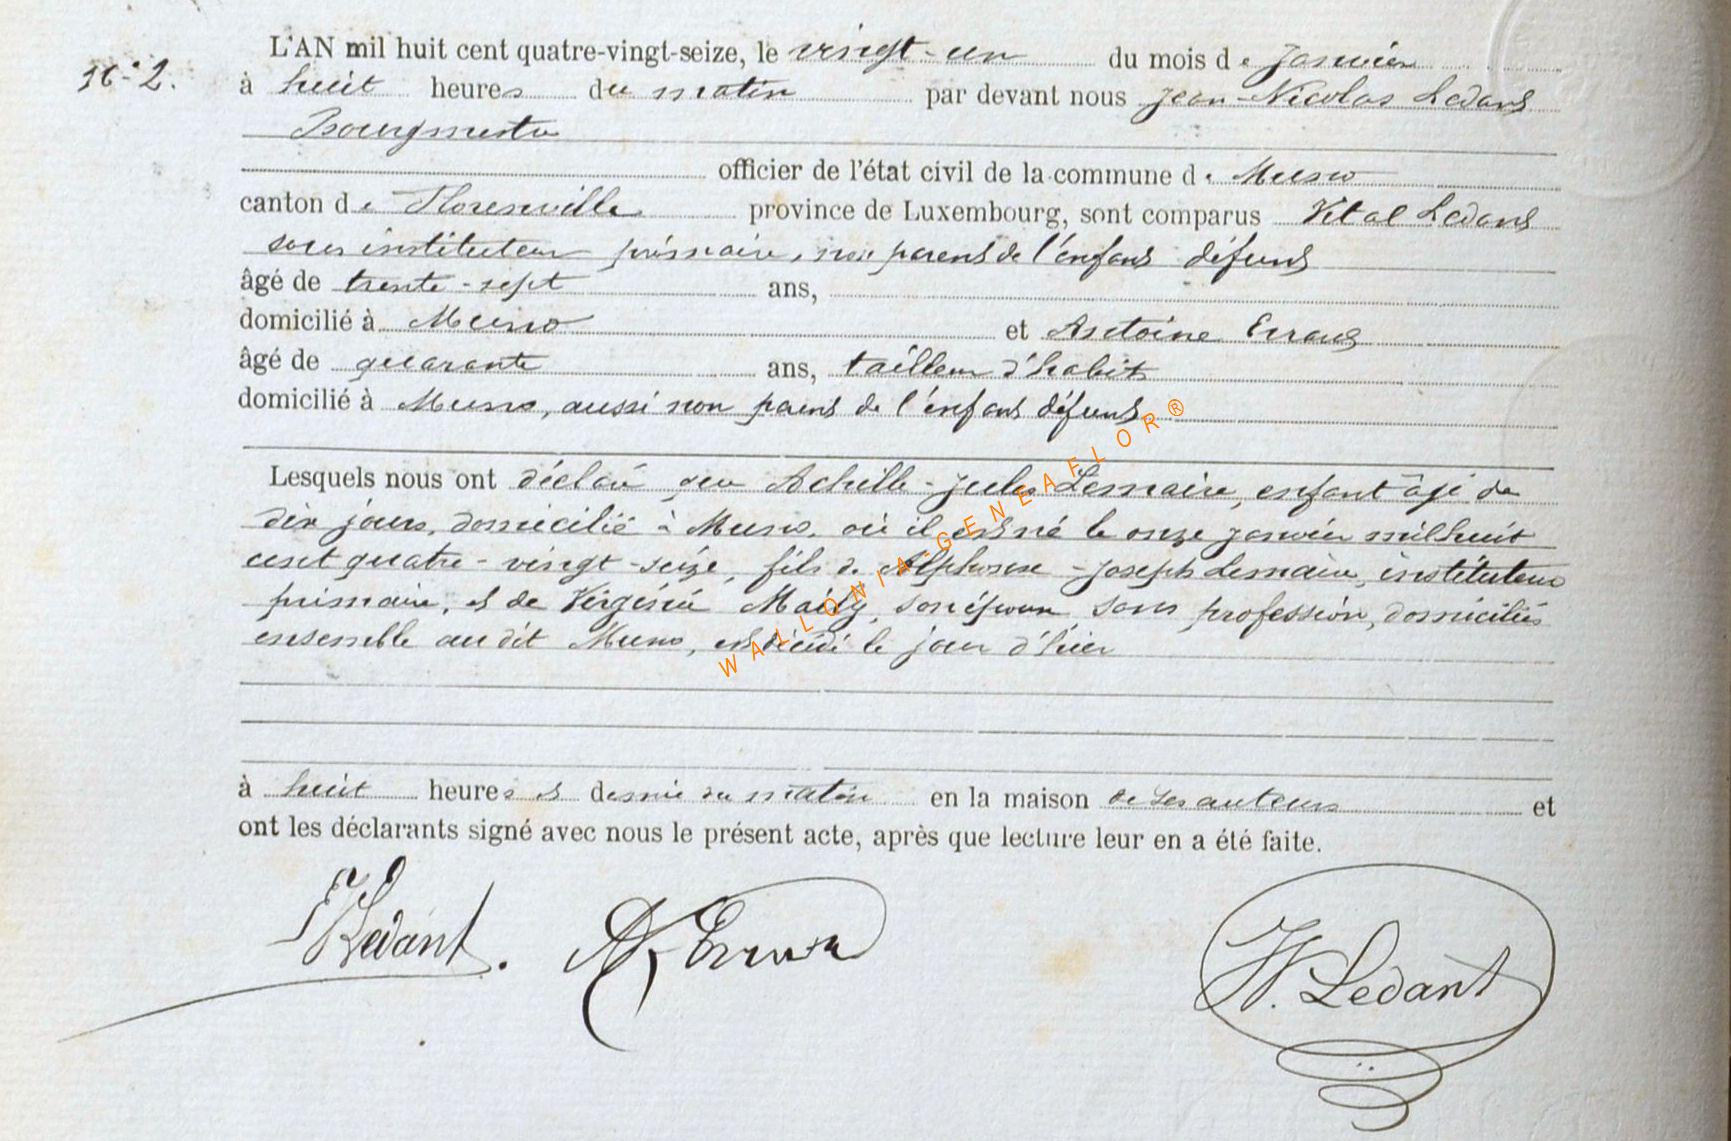 N° 2.
L'AN mil huit cent quatre-vingt-seize, le vingt-un du mois de janvier
à huit heures du matin par devant nous Jean-Nicolas Ledant
Bourgmestre
officier de l'état civil de la commune de Muno
canton de Florenville province de Luxembourg, sont comparus Vital Ledant
sous instituteur primaire, non parent de l'enfant défunt
âgé de trente-sept ans,
domicilié à Muno et Antoine
âgé de quarante ans, tailleur d'habits
domicilié à Muno, aussi non parent de l'enfant défunt
Lesquels nous ont déclaré que Achille-Jules Lemaire, enfant âgé de
dix jours, domicilié à Muno, où il est né le onze janvier mil huit
cent quatre-vingt-seize, fils de Alphonse-Joseph Lemaire, instituteur
primaire, et de Virginie son épouse sans profession, domiciliés
ensemble au dit Muno, est décédé le jour d'hier
à huit heures et demie du matin en la maison de ses auteurs et
ont les déclarants signé avec nous le présent acte, après que lecture leur en a été faite.
VLedant. N. Ledant
WALLONIA-GENEAFLOR®